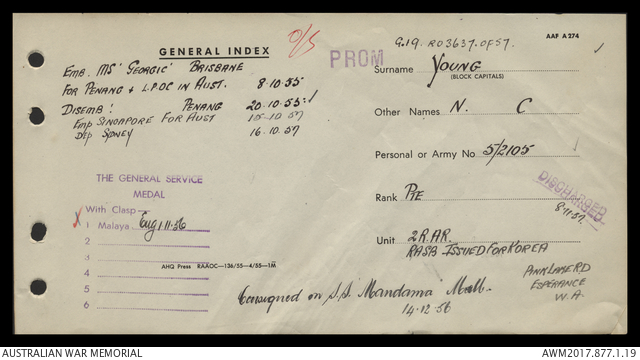 G.19. R03637.OF57.
AAF A274
GENERAL INDEX
O/S
PROM
Emb. MS 'Georgic' Brisbane
For Penang & L.P.O.C in Aust. 8.10.55
Disemb: Penang 20.10.55
Emp Singapore For Aust 15-10-57
Dep Sydney 16.10.57
Surname Young
(BLOCK CAPITALS)
Other Names N. C
Personal or Army No 5/2105
Rank Pte
DISCHARGED
8.11.57
Unit 2 R.A.R.
RASB Issued for Korea
THE GENERAL SERVICE
MEDAL
With Clasp
X 1 Malaya Eng 1.11.56
2
3
4
5
6
AHQ Press RAAOC—136/55—4/55—1M
Consigned on S.S. Mandama Melb.
14.12.56
Esperance
W.A
AUSTRALIAN WAR MEMORIAL
AWM2017.877.1.19